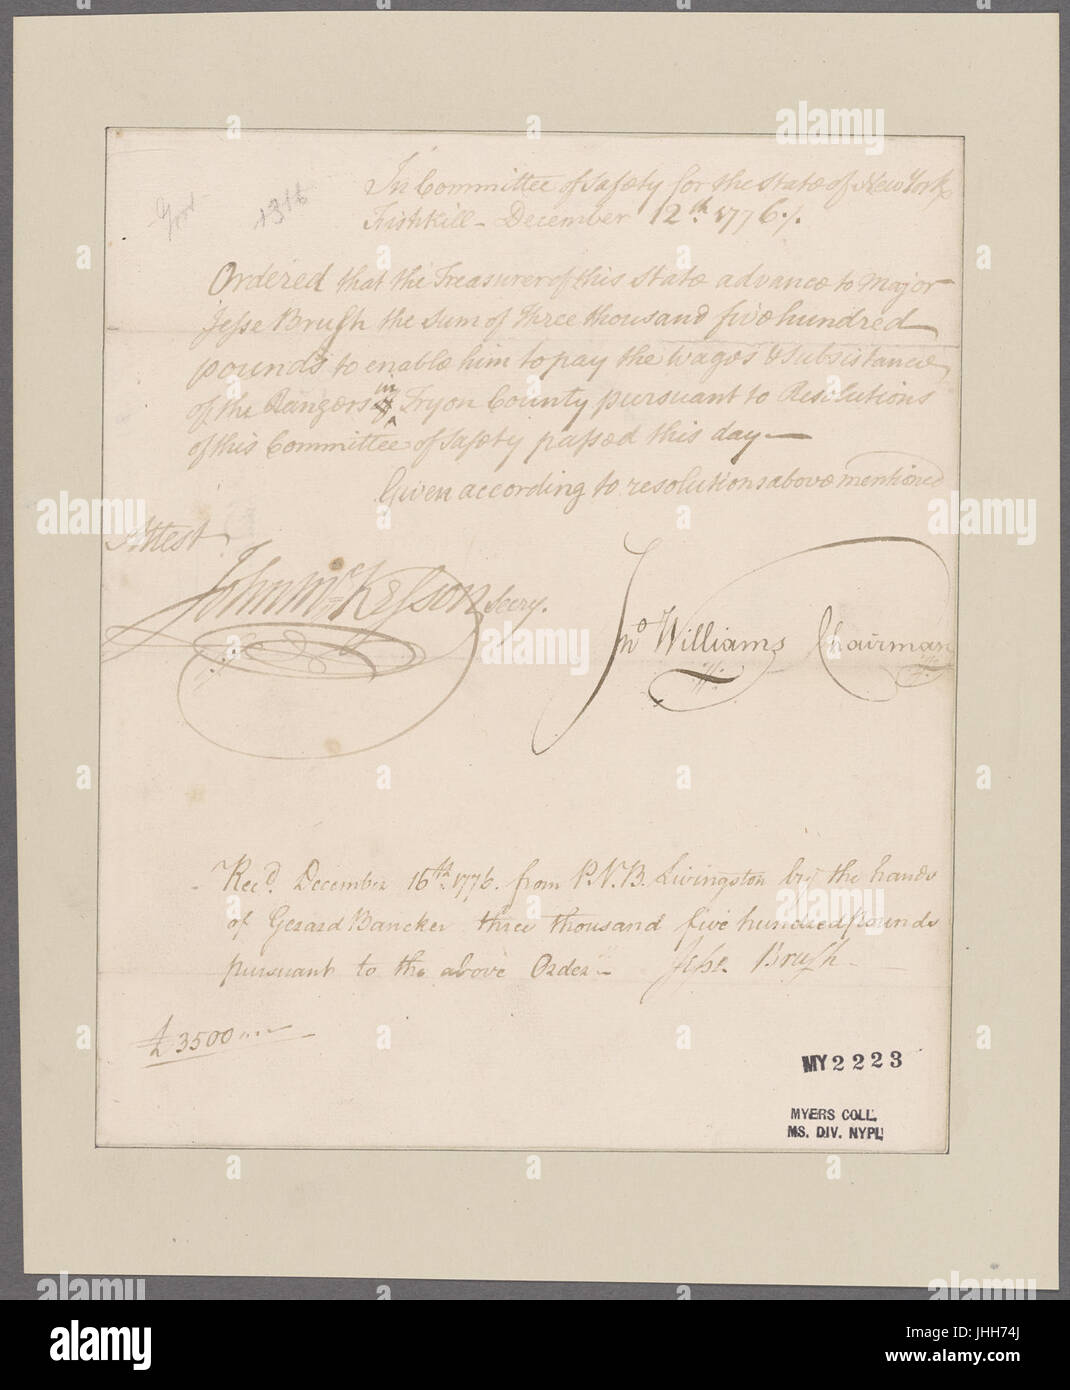 In Committee of Safety for the State of New York
Fishkill - December 12th 1776./.
1311
Ordered that the Treasurer of this State advance to Major
Jesse Brush the sum of Three thousand five hundred
pounds to enable him to pay the wages & subsistance
of the Rangers in Tryon County pursuant to Resolutions
of this Committee of Safety passed this day—
Given according to resolutions above mentioned
Attest
John McKesson Secry.
Jno Williams Chairman
Recd. December 16th. 1776. from P.V.B. Livingston by the hands
of Gerard Bancker three thousand five hundred Pounds
pursuant to the above Order - Jesse Brush
£3500
MY2223
MYERS COLL.
MS. DIV. NYPL
alamy
alamy
alamy
alamy
alamy
alamy
alamy
alamy
alamy
Image ID: JHH74J
www.alamy.com